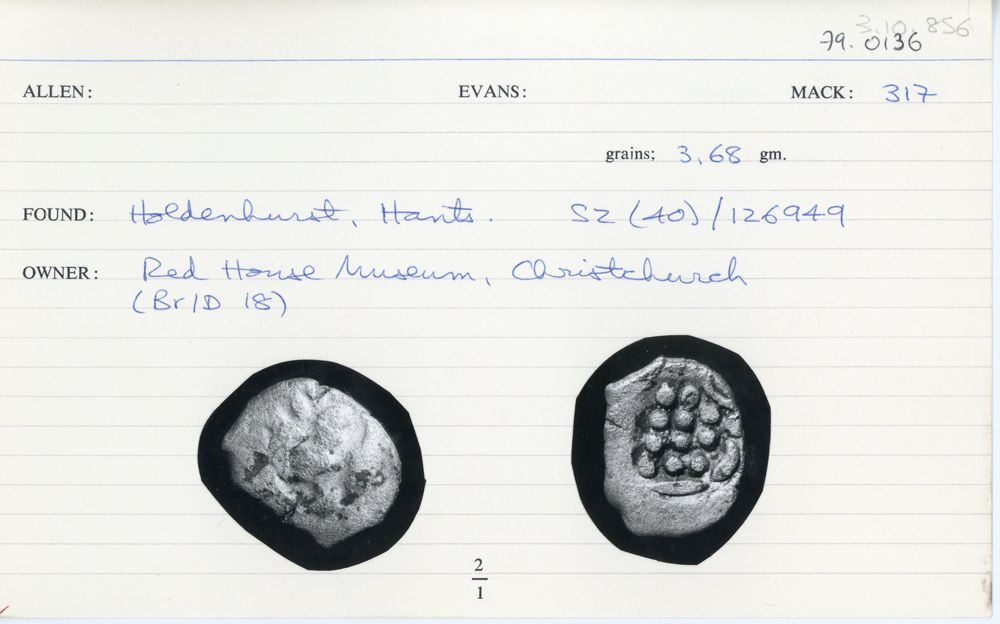 3.10.856
79.0136
ALLEN: EVANS: MACK: 317
grains; 3.68 gm.
FOUND: Holdenhurst, Hants. SZ (40) / 126949
OWNER: Red House Museum, Christchurch
(Br/D 18)
2
1